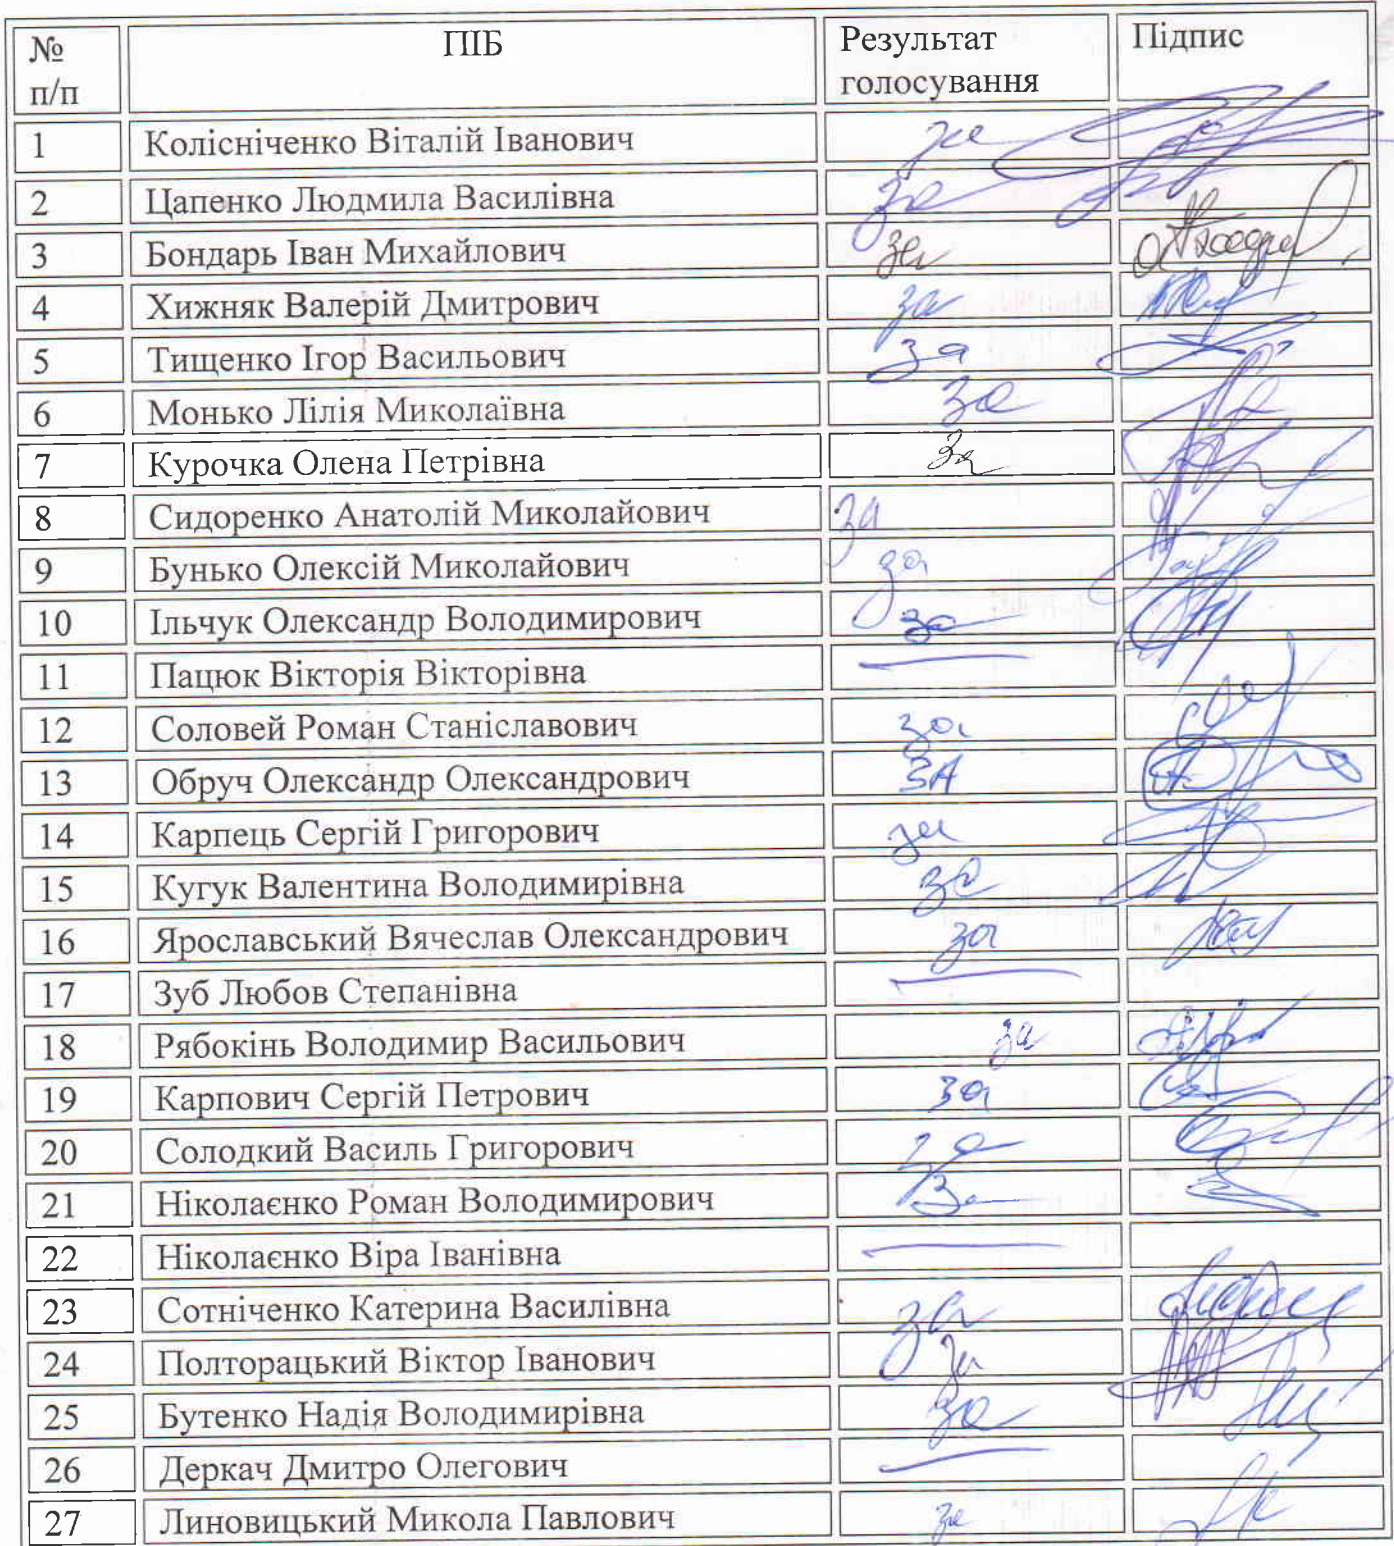 № п/п ПІБ Результат голосування Підпис
1 Колісніченко Віталій Іванович за
2 Цапенко Людмила Василівна за
3 Бондарь Іван Михайлович за
4 Хижняк Валерій Дмитрович за
5 Тищенко Ігор Васильович за
6 Монько Лілія Миколаївна за
7 Курочка Олена Петрівна За
8 Сидоренко Анатолій Миколайович за
9 Бунько Олексій Миколайович за
10 Ільчук Олександр Володимирович за
11 Пацюк Вікторія Вікторівна —
12 Соловей Роман Станіславович за
13 Обруч Олександр Олександрович ЗА
14 Карпець Сергій Григорович за
15 Кугук Валентина Володимирівна за
16 Ярославський Вячеслав Олександрович за
17 Зуб Любов Степанівна —
18 Рябокінь Володимир Васильович за
19 Карпович Сергій Петрович за
20 Солодкий Василь Григорович за
21 Ніколаєнко Роман Володимирович За
22 Ніколаєнко Віра Іванівна —
23 Сотніченко Катерина Василівна за
24 Полторацький Віктор Іванович за
25 Бутенко Надія Володимирівна за
26 Деркач Дмитро Олегович —
27 Линовицький Микола Павлович за